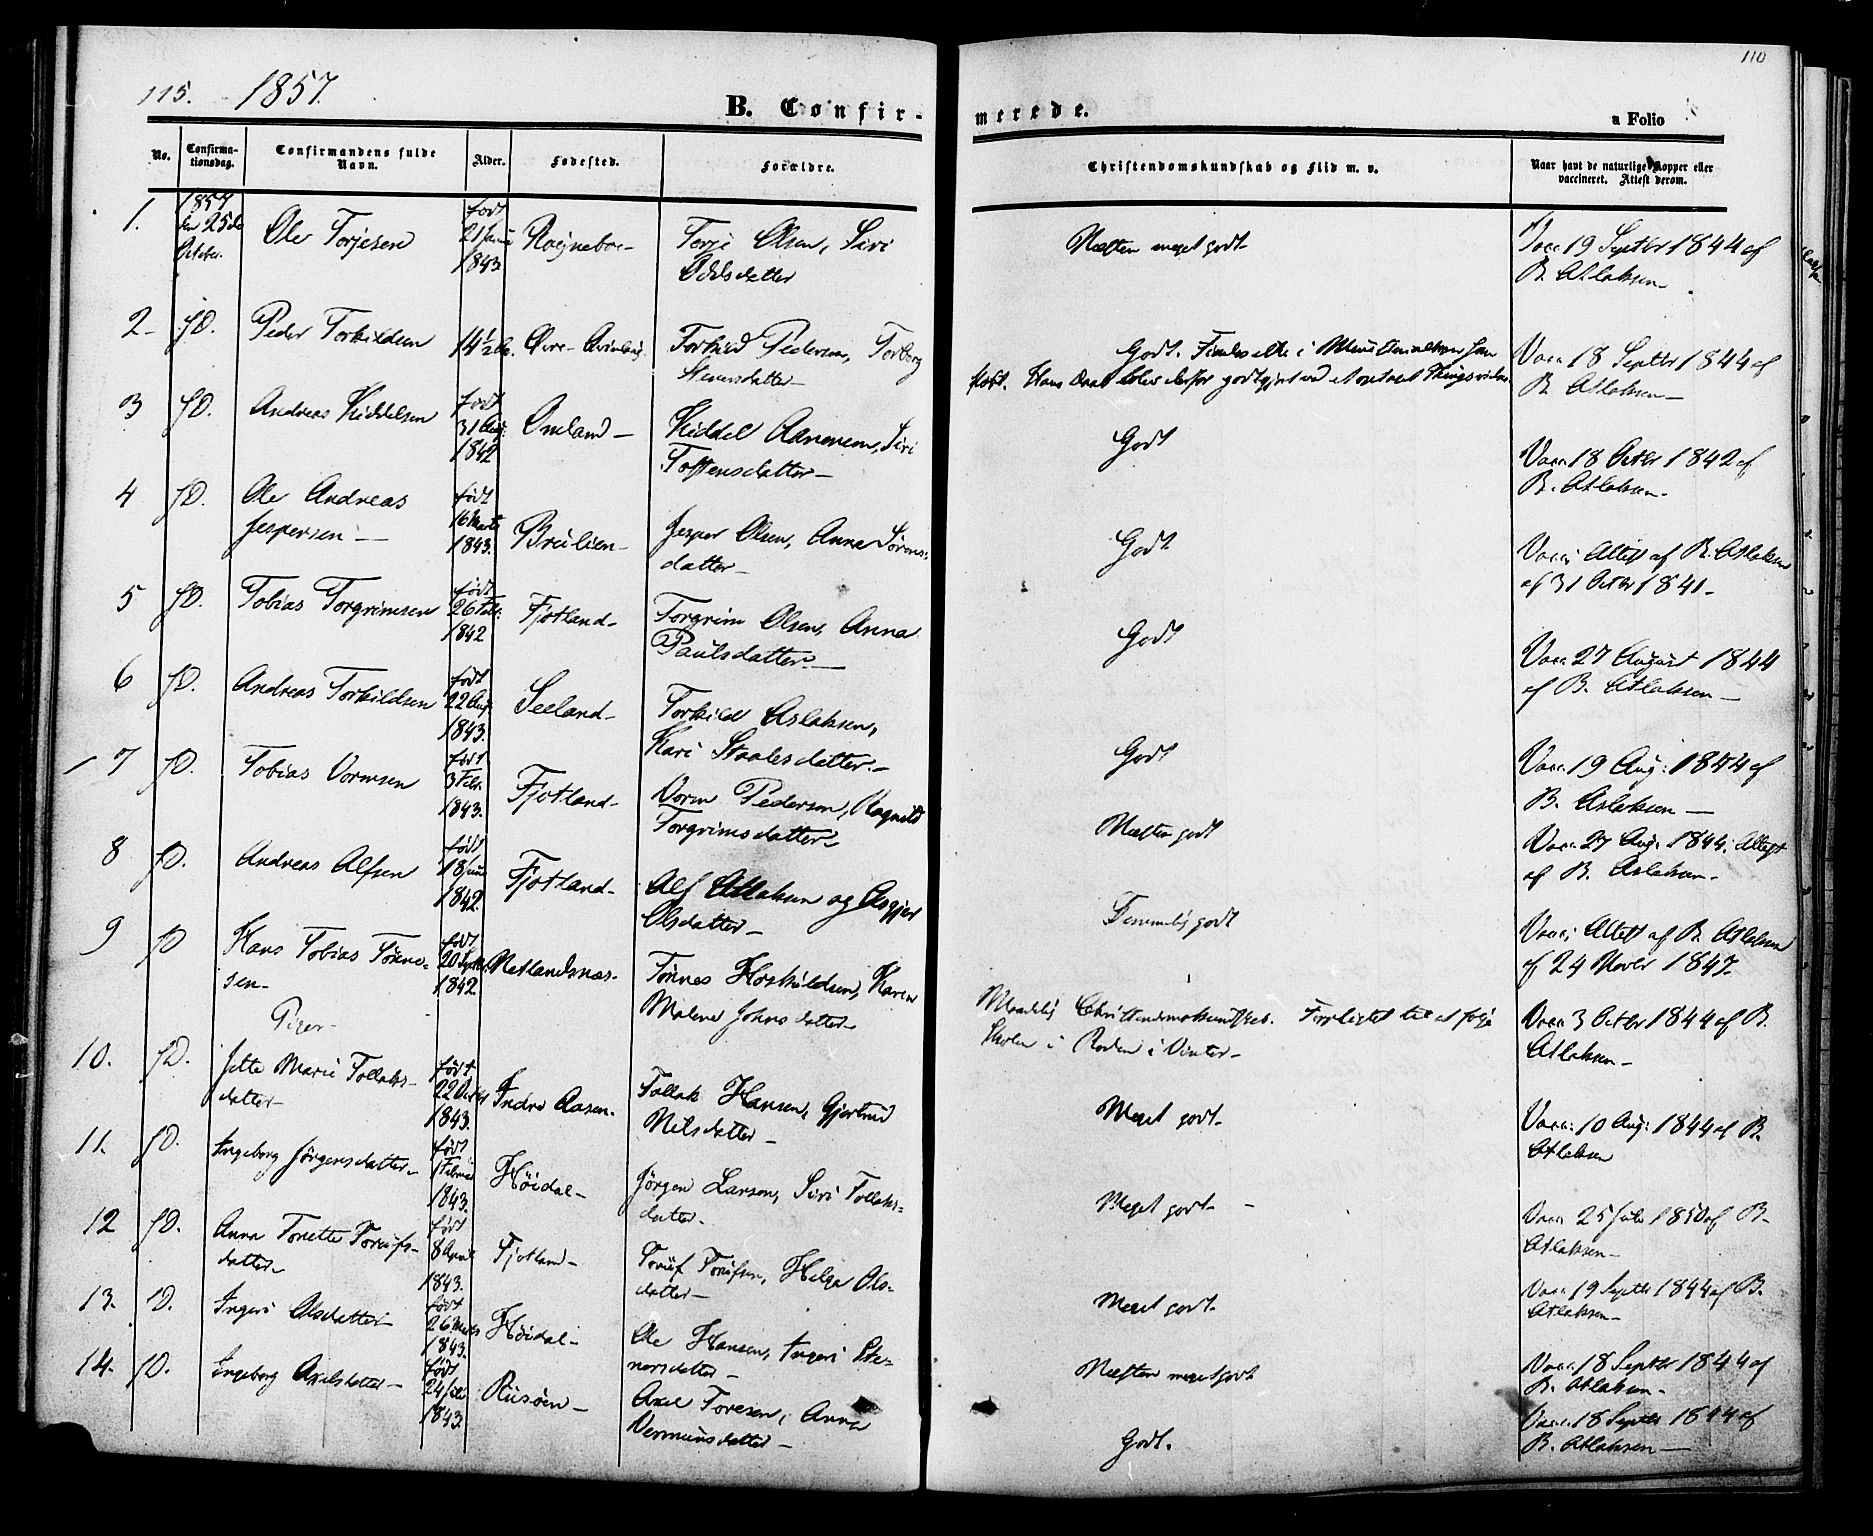 115. 1857.
B. Confir-
merede.
a Folio
110
No.
Confirma-
tionsdag.
Confirmandens fulde
Navn.
Alder.
Fødested.
Forældre.
Christendomskundskab og Flid m. v.
Naar havt de naturlige Kopper eller
vaccineret. Attest derom.
1. 1857 den 25de October. Ole Torjesen født 21 1843. Torje Olsen, Siri
Oddsdatter
Næsten meget godt
Vacc. 19 Septbr 1844 af
B. Atlaksen
2 Peder Torkildsen 14½ Torkild Pedersen, Torborg
Godt.
Vacc. 18 Septbr 1844 af
B. Atlaksen
3 Andreas Kiddelsen født 31 Aug: 1842 Omland Kiddel Siri
Tostensdatter
Godt
Vacc. 18 Octbr 1842 af
B. Atlaksen.
4 Ole Andreas
Jespersen født 16 Marts 1843. Brulien Jesper Olsen, Anna Sørens-
datter
Godt
Vacc: Attest af B. Atlaksen
af 31 Octbr 1841.
5 Tobias Torgrimsen født 26 Febr: 1842 Fjotland Torgrim Olsen, Anna
Paulsdatter
Godt
Vacc. 27 August 1844
af B. Atlaksen
6 Andreas Torkildsen født 22 Aug. 1843. Seeland Torkild Aslaksen,
Kari Staalesdatter.
Godt
Vacc. 19 Aug: 1844 af
B. Aslaksen
7 Tobias Vormsen født 3 Febr. 1843. Fjotland Vorm Pedersen, Ragnild
Torgrimsdatter
Næsten godt
Vacc. 27 Aug: 1844. Attest
af B. Aslaksen.
8 Andreas Alfsen født 18 1842. Fjotland Alf Atlaksen og Asgjerd
Olsdatter
Temmelig godt
Vacc: Attest af B. Atlaksen
af 24 Novbr 1847.
9 Hans Tobias Tønne-
sen født 20 Septbr 1842 Netlandsnæs. Tønnes Hoskildsen, Karen
Malene Johnsdatter
Maadelig Christendomskundskab. Forpligtet til at følge
Skolen i Roden i Vinter
Vacc. 3 Octbr 1844 af B.
Atlaksen
Piger
10. Jette Marie Tollaks-
datter født 22 1843. Indre Aasen. Tollak Hansen, Gjertrud
Nilsdatter
Meget godt.
Vacc: 10 Aug: 1844 af B.
Atlaksen
11. Ingeborg Jørgensdatter født 1 1843. Høidal Jørgen Larsen, Siri Tollaks-
datter.
Meget godt
Vacc. 25 Juli 1850 af B.
Atlaksen
12 Anna Tonette
datter født 8 April 1843. Fjotland Helga Ols-
datter
Meget godt.
Vacc. 19 Septbr 1844 af B.
Atlaksen
13. Ingeri Olsdatter født 26 Marts 1843. Høidal Ole Hansen, Ingeri Ste-
nersdatter
Næsten meget godt
Vacc. 18 Septbr 1844 af
B. Atlaksen
14. Ingeborg Axelsdatter født 24 1843. Risøen Axel Toresen, Anna
Vermunsdatter
Godt.
Vacc. 18 Septbr 1844 af
B. Atlaksen